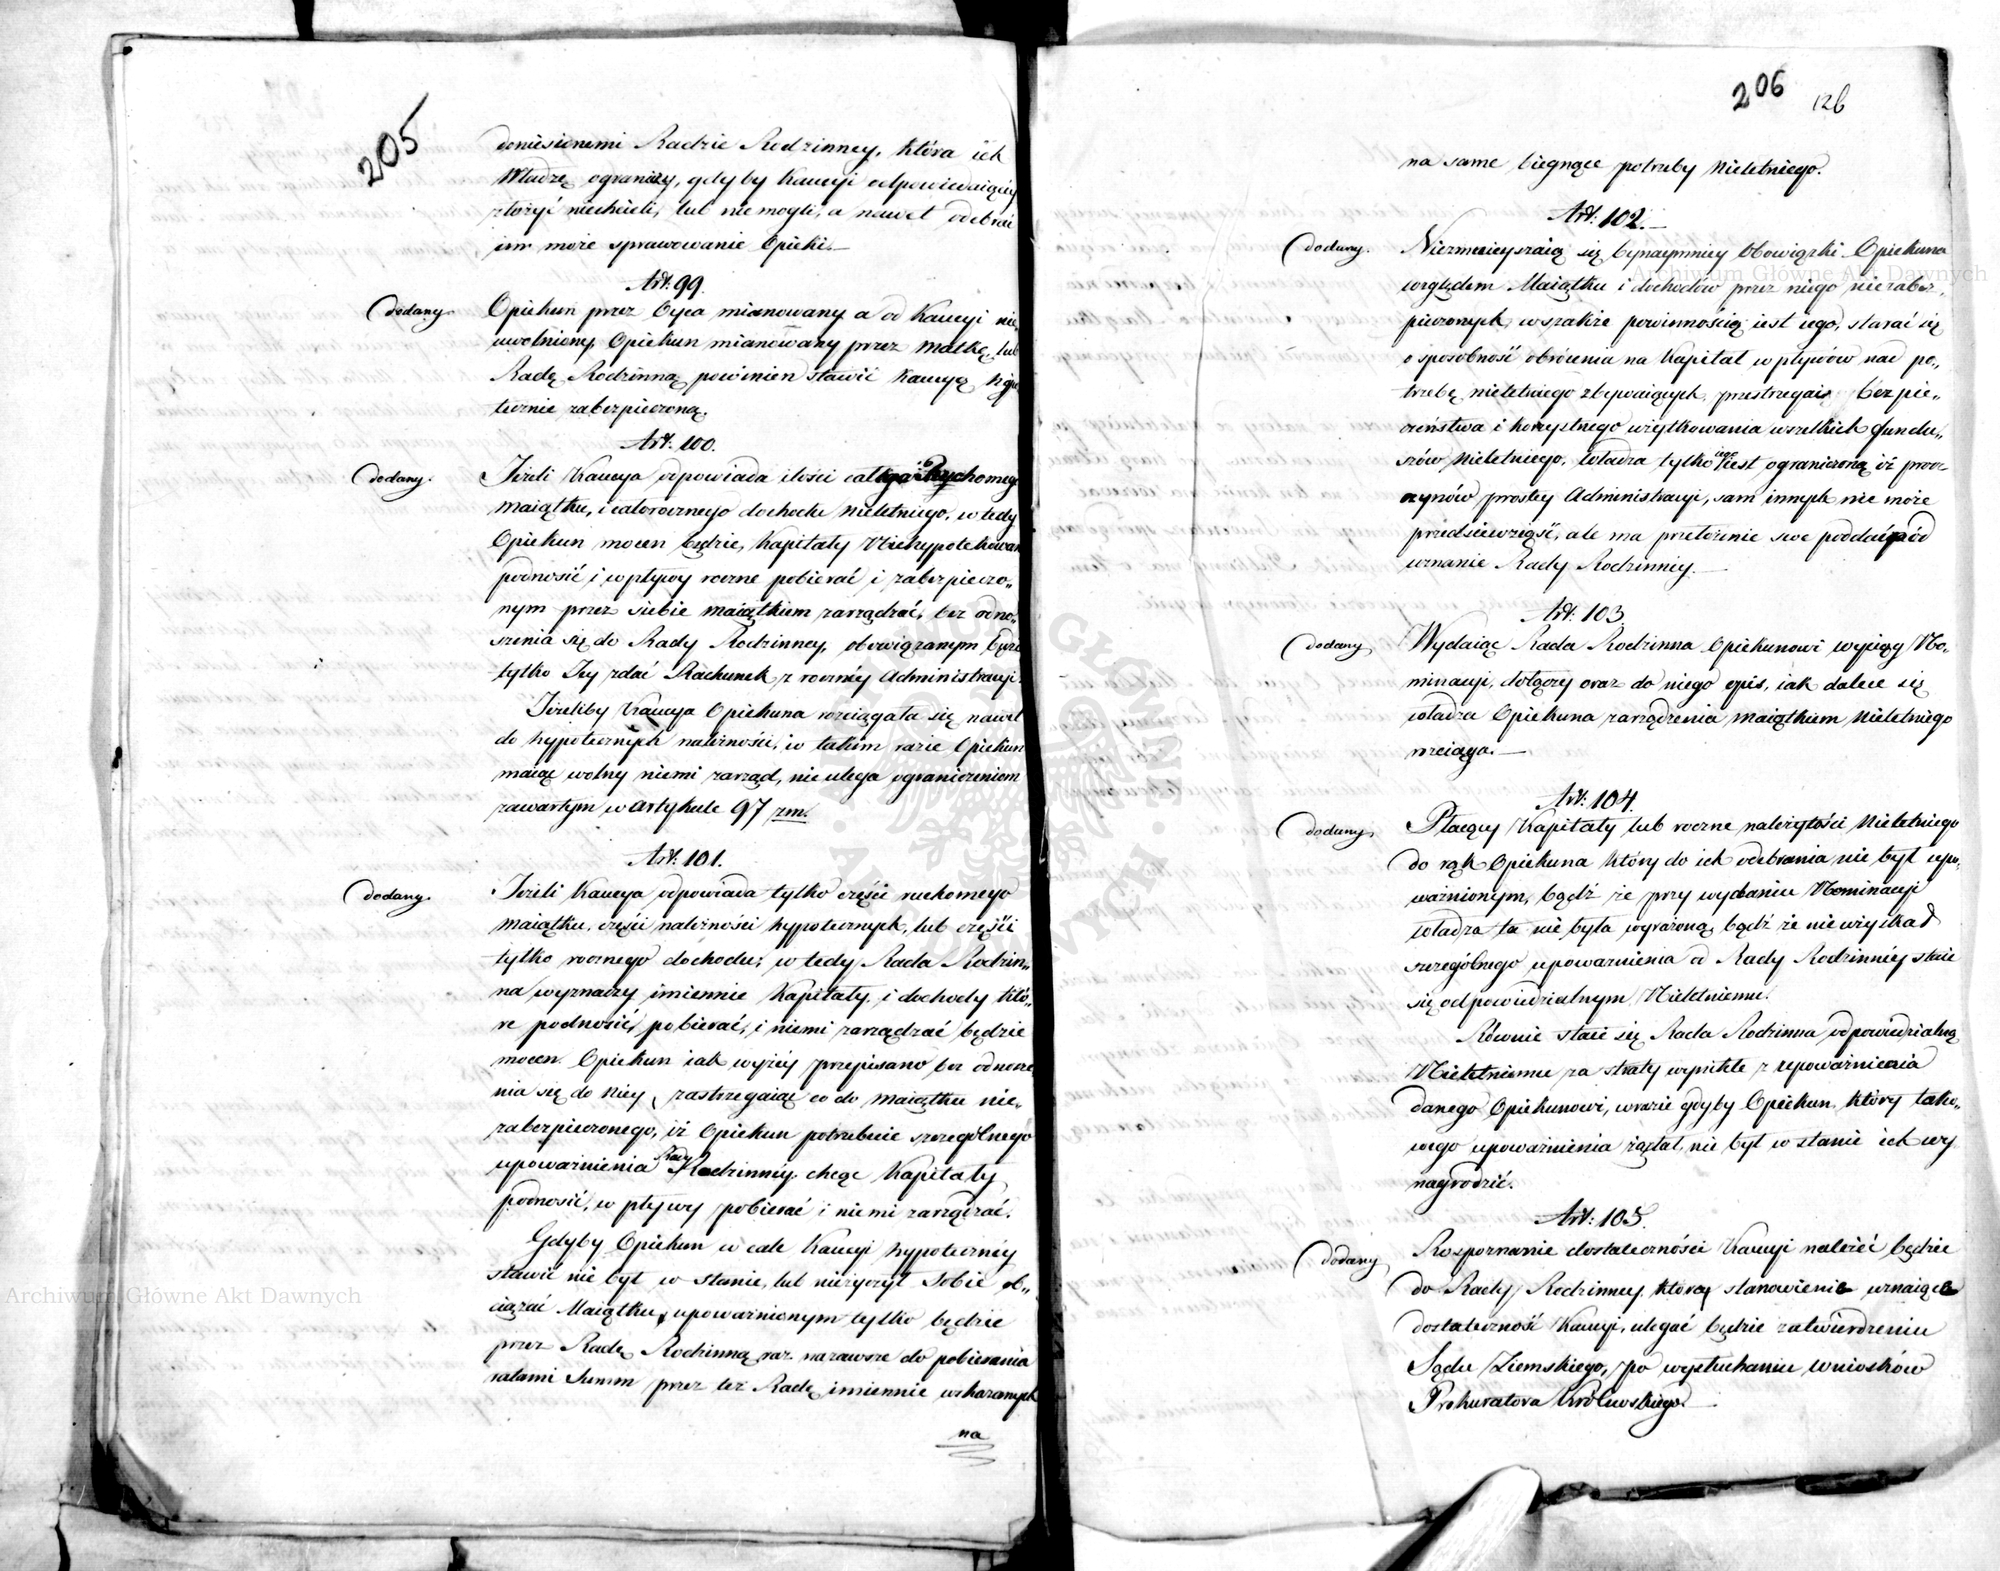 205
doniesionemi Radzie Rodzinney, która ich
Władzę ograniczy, gdyby Kaucyi odpowiedniey
złożyć niechcieli, lub niemogli, a nawet odebrać
im może sprawowanie Opieki.—
Art: 99.
dodany.
Opiekun przez Oyca mianowany a od Kaucyi nie
uwolniony, Opiekun mianowany przez Matkę, lub
Radę Rodzinną powinien stawić Kaucyą hypo
tecznie zabezpieczoną.
Art: 100.
dodany.
Jeżeli Kaucya odpowiada ilości całego ruchomego
Maiątku, i całorocznego dochodu Nieletniego, wtedy
Opiekun mocen będzie, Kapitały Niehypotekowan
podnosić i wpływy roczne pobierać i zabezpieczo„
nym przez siebie Maiątkiem zarządzać, bez odno„
szenia się do Rady Rodzinney, obowiązanym będzie
tylko Jey zdać Rachunek z roczney Administracyi.
Jeżeliby Kaucya Opiekuna rozciągała się nawet
do hypotecznych należności, w takim razie Opiekun
maiąc wolny niemi zarząd, nie ulega ograniczeniom
zawartym w Artykule 97 zm.
Art: 101.
dodany.
Jeżeli Kaucya odpowiada tylko części ruchomego
Maiątku, części należności hypotecznych, lub części
tylko rocznego dochodu; wtedy Rada Rodzin„
na wyznaczy imiennie Kapitały, i dochody któ„
re podnosić, pobierać, i niemi zarządzać będzie
mocen Opiekun iak wyżéy przepisano bez odnosze
nia się do Niey, zastrzegaiąc co do Maiątku nie„
zabezpieczonego, iż Opiekun potrzebuie szczególnego
upoważnienia Rady Rodzinnéy, chcąc Kapitały
podnosić, wpływy pobierać i niemi zarządzać.
Gdyby Opiekun wcale Kaucyi hypotecznéy
stawić nie był w stanie, lub nieżyczył sobie ob„
ciążać Maiątku, upoważnionym tylko będzie
przez Radę Rodzinną raz nazawsze do pobierania
ratami Summ przez też Radę imiennie wskazanych
na
206 126
na same bieżące potrzeby Nieletniego.
Art: 102.—
dodany.
Niezmnieyszaią się bynaymniey Obowiązki Opiekuna
względem Maiątku i dochodów przez niego niezabez„
pieczonych, wszakże powinnością iest iego, starać się
o sposobność obrócenia na Kapitał wpływów nad po„
trzebę nieletniego zbywaiących, przestrzegać bezpie„
czeństwa i korzystnego użytkowania wszelkich Fundu„
szów Nieletniego, władza tylko iego iest ograniczoną iż prócz
czynów prostey Administracyi, sam innych nie może
przedsięwziąść, ale ma przełożenie swe poddać pod
uznanie Rady Rodzinnéy.—
Art: 103.
dodany
Wydaiąc Rada Rodzinna Opiekunowi wyciąg No„
minacyi, dołączy oraz do niego opis, iak dalece się
władza Opiekuna zarządzenia Maiątkiem Nieletniego
rozciąga.—
Art: 104.
dodany.
Płacący Kapitały lub roczne należytości Nieletniego
do rąk Opiekuna który do ich odebrania nie był upo„
ważnionym, bądź że przy wydaniu Nominacyi
władza ta nie była wyrażoną, bądź że nie wyiskał
szczególnego upoważnienia od Rady Rodzinnéy staie
się odpowiedzialnym Nieletniemu.
Równie staie się Rada Rodzinna odpowiedzialną
Nieletniemu za straty wynikłe z upoważnienia
danego Opiekunowi, w razie gdyby Opiekun, który tako„
wego upoważnienia żądał, nie był w stanie ich wy
nagrodzić.
Art: 105.
dodany
Rozpoznanie dostateczności Kaucyi należéć będzie
do Rady Rodzinney, którey stanowienie uznaiące
dostateczność Kaucyi, ulegać będzie zatwierdzeniu
Sądu Ziemskiego, po wysłuchaniu Wniosków
Prokuratora Królewskiego.—
Archiwum Główne Akt Dawnych
Archiwum Główne Akt Dawnych